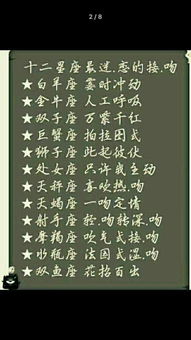 2/8
十二星座最迷.恋的接.吻
★白羊座 霎时冲动
★金牛座 人工呼吸
★双子座 万紫千红
★巨蟹座 拍拉图式
★狮子座 此起彼伏
★处女座 只许我主动
★天秤座 喜吹热.吻
★天蝎座 一吻定情
★射手座 轻.吻转深.吻
★摩羯座 吹气式接.吻
★水瓶座 法国式湿.吻
★双鱼座 花招百出